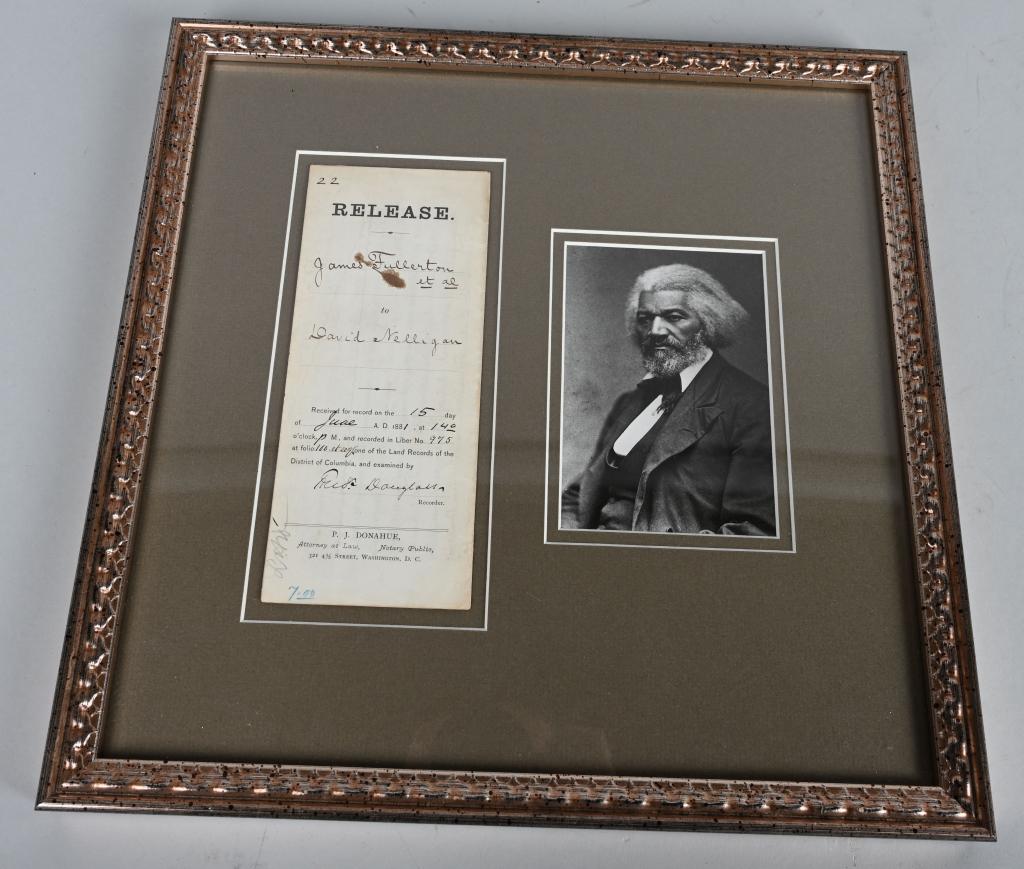 22
RELEASE.
James Fullerton
et al
to
David Nelligan
Received for record on the 15 day
of June A. D. 1881, at 140
o'clock P M., and recorded in Liber No. 975
at folio 160 et one of the Land Records of the
District of Columbia, and examined by
Fredk Douglass
Recorder.
P. J. DONAHUE,
Attorney at Law, Notary Public,
321 4½ STREET, WASHINGTON, D. C.
7.00